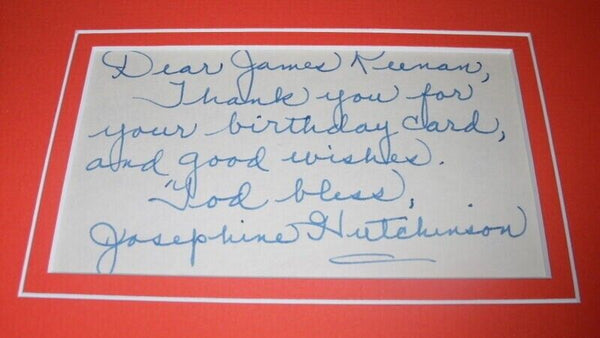 Dear James Keenan,
Thank you for
your birthday card,
and good wishes.
God bless,
Josephine Hutchinson